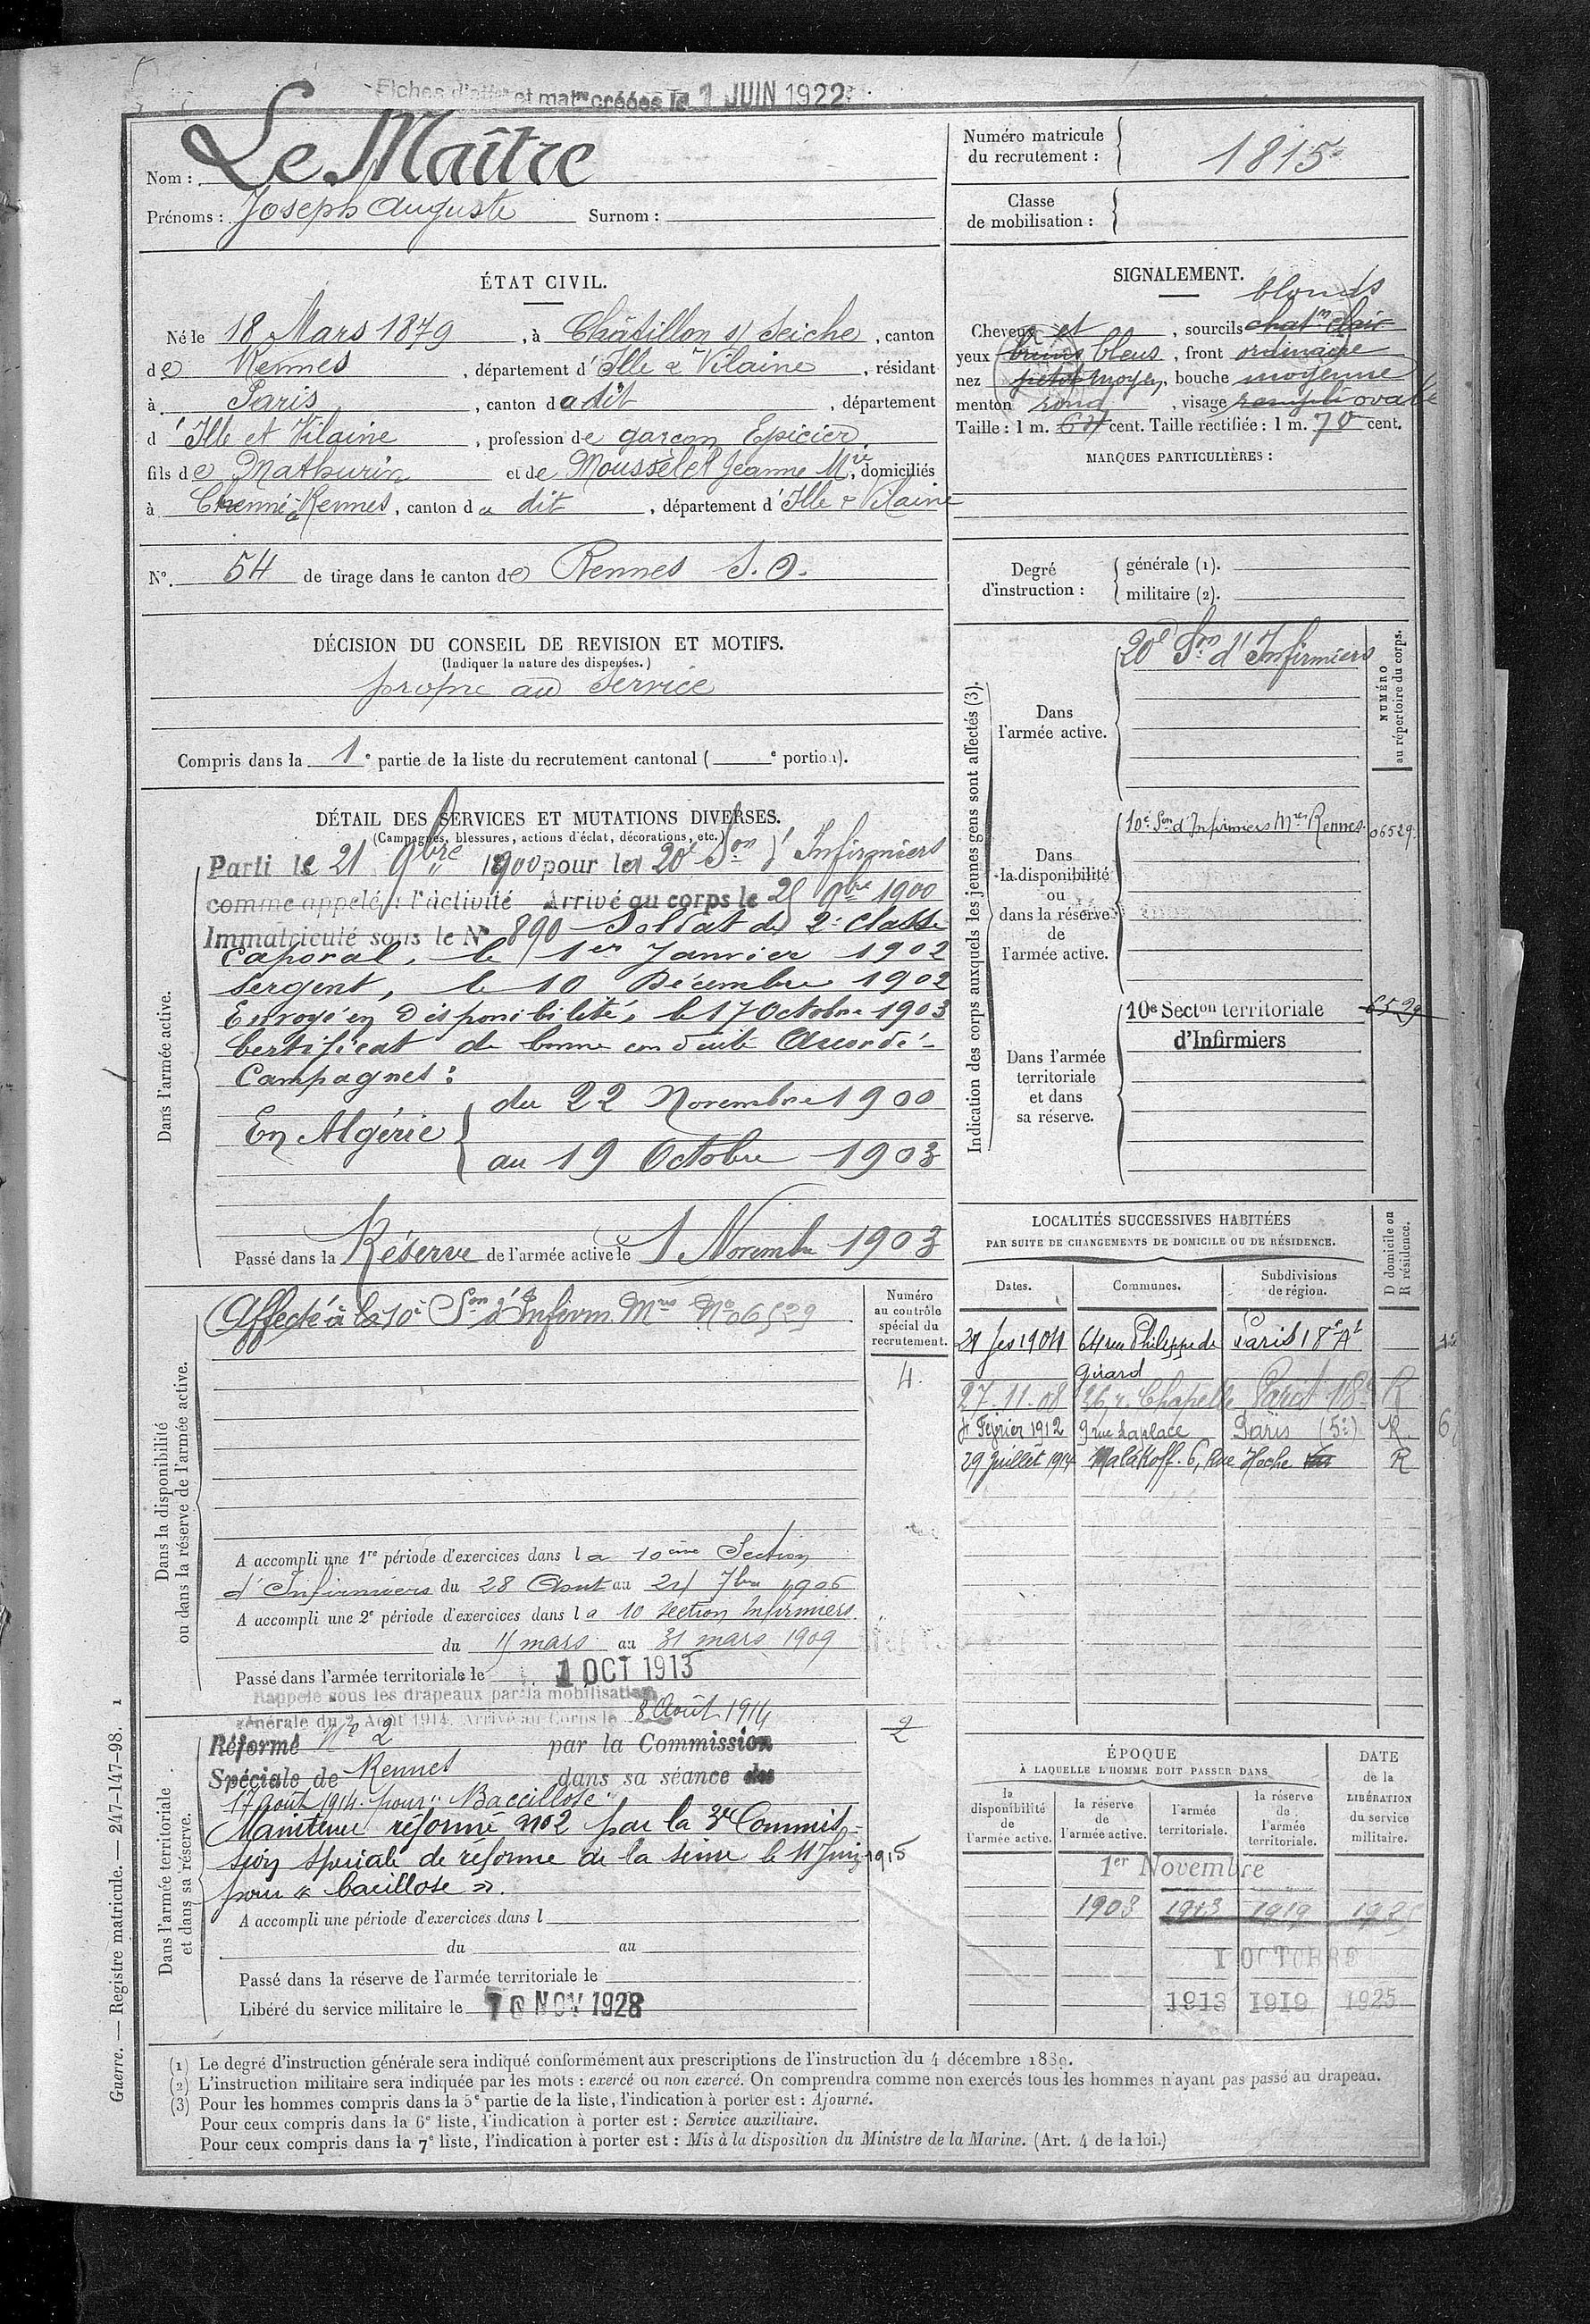 Fiches d'aff et mat créées le 1 JUIN 1922
Nom : Le Maître
Prénoms : Joseph Auguste Surnom :
Numéro matricule
du recrutement :
1815
Classe
de mobilisation :
ÉTAT CIVIL.
Né le 18 Mars 1879, à Châtillon s/ Seiche, canton
de Rennes, département d'Ille & Vilaine, résidant
à Paris, canton du dit, département
d'Ille et Vilaine, profession de garçon Epicier
fils de Mathurin et de Jeanne Mie, domiciliés
à Rennes, canton du dit, département d'Ille & Vilaine
N°. 54 de tirage dans le canton de Rennes S. O.
SIGNALEMENT.
blonds
Cheveux et, sourcils chatn clair
yeux bruns bleus, front ordinaire
nez petit moyen, bouche moyenne
menton rond, visage rempli ovale
Taille : 1 m. 64 cent. Taille rectifiée : 1 m. 70 cent.
MARQUES PARTICULIÈRES :
Degré
d'instruction :
générale (1).
militaire (2).
DÉCISION DU CONSEIL DE REVISION ET MOTIFS.
(Indiquer la nature des dispenses.)
propre au service
Compris dans la 1e partie de la liste du recrutement cantonal ( e portion).
DÉTAIL DES SERVICES ET MUTATIONS DIVERSES.
(Campagnes, blessures, actions d'éclat, décorations, etc.)
Dans l'armée active.
Parti le 21 9bre 1900 pour la 20e Son d'Infirmiers
comme appelé à l'activité Arrivé au corps le 25 9bre 1900
Immatriculé sous le N° 890 Soldat de 2e Classe
Caporal, le 1er Janvier 1902
Sergent, le 10 Décembre 1902
Envoyé en disponibilité, le 17 Octobre 1903
Certificat de bonne conduite Accordé
Campagnes :
En Algérie
du 22 Novembre 1900
au 19 Octobre 1903
Passé dans la Réserve de l'armée active le 1 Novembre 1903
Indication des corps auxquels les jeunes gens sont affectés (3).
NUMÉRO
au répertoire du corps.
Dans
l'armée active.
20e Son d'Infirmiers
Dans
la disponibilité
ou
dans la réserve
de
l'armée active.
10e Son d'Infirmiers Mres Rennes 06529
Dans l'armée
territoriale
et dans
sa réserve.
10e Secton territoriale 6529
d'Infirmiers
Dans la disponibilité
ou dans la réserve de l'armée active.
Affecté à la 10e Son d'Infirm. Mres N° 06529
Numéro
au contrôle
spécial du
recrutement.
4.
A accompli une 1re période d'exercices dans la 10ème Section
d'Infirmiers du 28 Aout au 24 7bre 1906
A accompli une 2e période d'exercices dans la 10 section Infirmiers
du mars au 31 mars 1909
Passé dans l'armée territoriale le 1 OCT 1913
Rappelé sous les drapeaux par la mobilisation
générale du 2 Août 1914. Arrivé au Corps le 8 Août 1914
Dans l'armée territoriale
et dans sa réserve.
2
Réformé N° 2 par la Commission
Spéciale de Rennes dans sa séance des
17 août 1914. pour "Baccillose"
Maintenu réformé no 2 par la 3e Commis-
sion spéciale de réforme de la Seine le 11 Juin 1915
pour « bacillose ».
A accompli une période d'exercices dans l
du au
Passé dans la réserve de l'armée territoriale le
Libéré du service militaire le 10 NOV 1928
LOCALITÉS SUCCESSIVES HABITÉES
PAR SUITE DE CHANGEMENTS DE DOMICILE OU DE RÉSIDENCE.
Dates.
Communes.
Subdivisions
de région.
D domicile ou
R résidence.
1904 64 rue Philippe de Girard Paris 18e At
27-11-08 26 r. Chapelle Paris 18e R
Février 1912 9 rue Laplace Paris (5e) R.
29 Juillet 1914 Malakoff. 6, Rue Hoche R
ÉPOQUE
À LAQUELLE L'HOMME DOIT PASSER DANS
la
disponibilité
de
l'armée active.
la réserve
de
l'armée active.
l'armée
territoriale.
la réserve
de
l'armée
territoriale.
DATE
de la
LIBÉRATION
du service
militaire.
1er Novembre
1903 1913 1919 1925
1 OCTOBRE
1913 1919 1925
(1) Le degré d'instruction générale sera indiqué conformément aux prescriptions de l'instruction du 4 décembre 1889.
(2) L'instruction militaire sera indiquée par les mots : exercé ou non exercé. On comprendra comme non exercés tous les hommes n'ayant pas passé au drapeau.
(3) Pour les hommes compris dans la 5e partie de la liste, l'indication à porter est : Ajourné.
Pour ceux compris dans la 6e liste, l'indication à porter est : Service auxiliaire.
Pour ceux compris dans la 7e liste, l'indication à porter est : Mis à la disposition du Ministre de la Marine. (Art. 4 de la loi.)
Guerre. — Registre matricule. — 247-147-98. 1